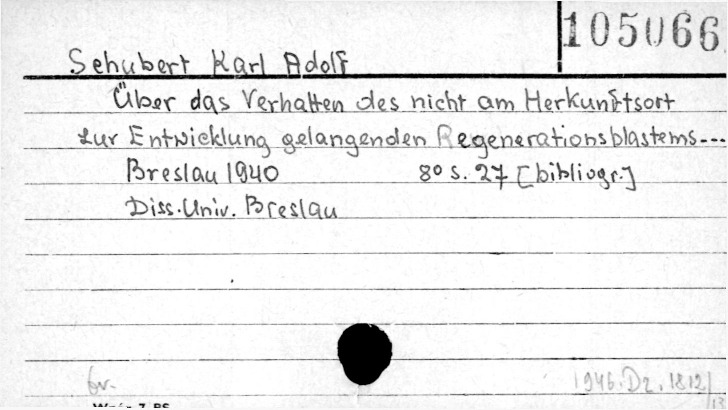 105066
Schubert Karl Adolf
Über das Verhalten des nicht am Herkunftsort
zur Entwicklung gelangenden Regenerationsblastems---
Breslau 1940 8° s. 27 [bibliogr.]
Diss. Univ. Breslau
br.
1946. Dz. 1812/13